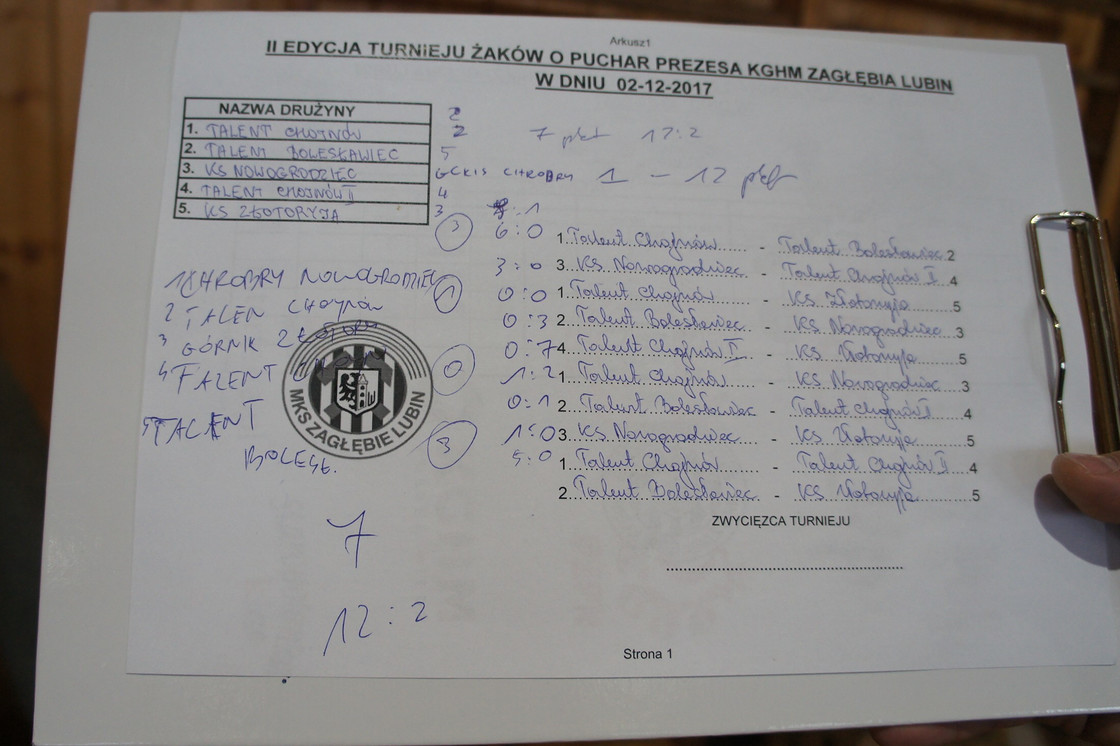 Arkusz1
II EDYCJA TURNIEJU ŻAKÓW O PUCHAR PREZESA KGHM ZAGŁĘBIA LUBIN
W DNIU 02-12-2017
NAZWA DRUŻYNY
1. TALENT CHOJNÓW
2. TALENT BOLESŁAWIEC
3. KS NOWOGRODZIEC
4. TALENT CHOJNÓW II
5. KS ZŁOTORYJA
2
2 7 pkt 17:2
5
GCKIS CHROBRY 1 - 12 pkt
4
3 :1
3 6:0 1. Talent Chojnów - Talent Bolesławiec 2
3:0 3. KS Nowogrodziec - Talent Chojnów II 4
0:0 1. Talent Chojnów - KS Złotoryja 5
0:3 2. Talent Bolesławiec - KS Nowogrodziec 3
0:7 4. Talent Chojnów II - KS Złotoryja 5
1:2 1. Talent Chojnów - KS Nowogrodziec 3
0:1 2. Talent Bolesławiec - Talent Chojnów II 4
1:0 3. KS Nowogrodziec - KS Złotoryja 5
5:0 1. Talent Chojnów - Talent Chojnów II 4
2. Talent Bolesławiec - KS Złotoryja 5
1 CHROBRY NOWOGRODZIEC 1
2 TALEN CHOJNÓW
3 GÓRNIK ZŁOTORY
4 TALENT CHOJNÓW 0
5 TALENT 3
BOLESŁ.
MKS ZAGŁĘBIE LUBIN
7
12:2
ZWYCIĘZCA TURNIEJU
Strona 1